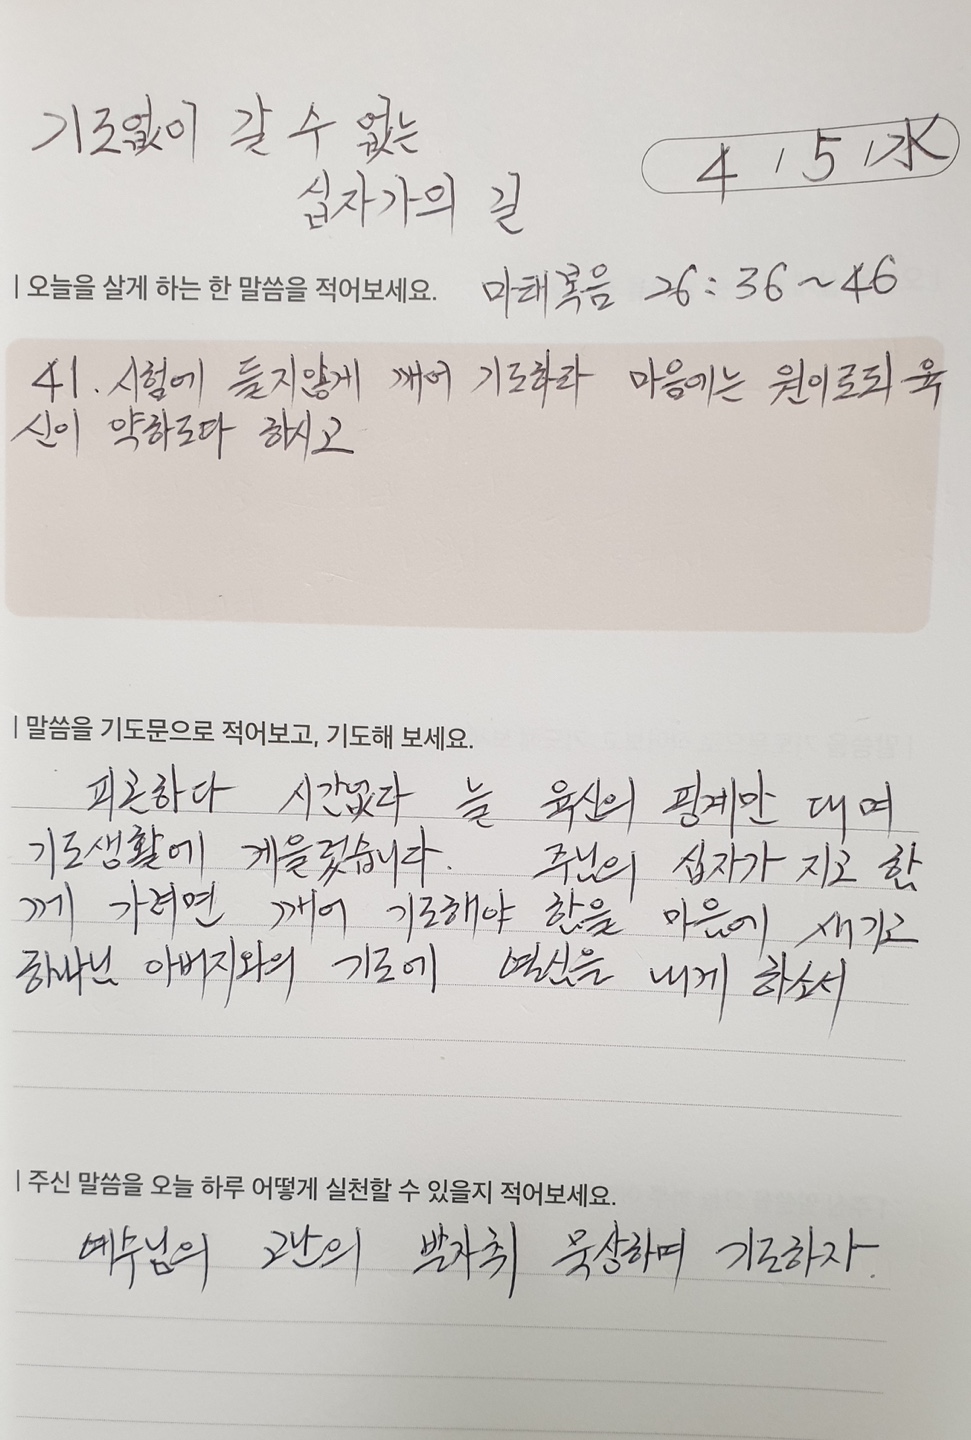 기도없이 갈 수 없는
십자가의 길
4 / 5 / 水
| 오늘을 살게 하는 한 말씀을 적어보세요. 마태복음 26:36~46
41. 시험에 들지않게 깨어 기도하라 마음에는 원이로되 육
신이 약하도다 하시고
| 말씀을 기도문으로 적어보고, 기도해 보세요.
피곤하다 시간없다 늘 육신의 핑계만 대며
기도생활에 게을렀습니다. 주님의 십자가 지고 함
께 가려면 깨어 기도해야 함을 마음에 새기고
하나님 아버지와의 기도에 열심을 내게 하소서
| 주신 말씀을 오늘 하루 어떻게 실천할 수 있을지 적어보세요.
예수님의 고난의 발자취 묵상하며 기도하자.